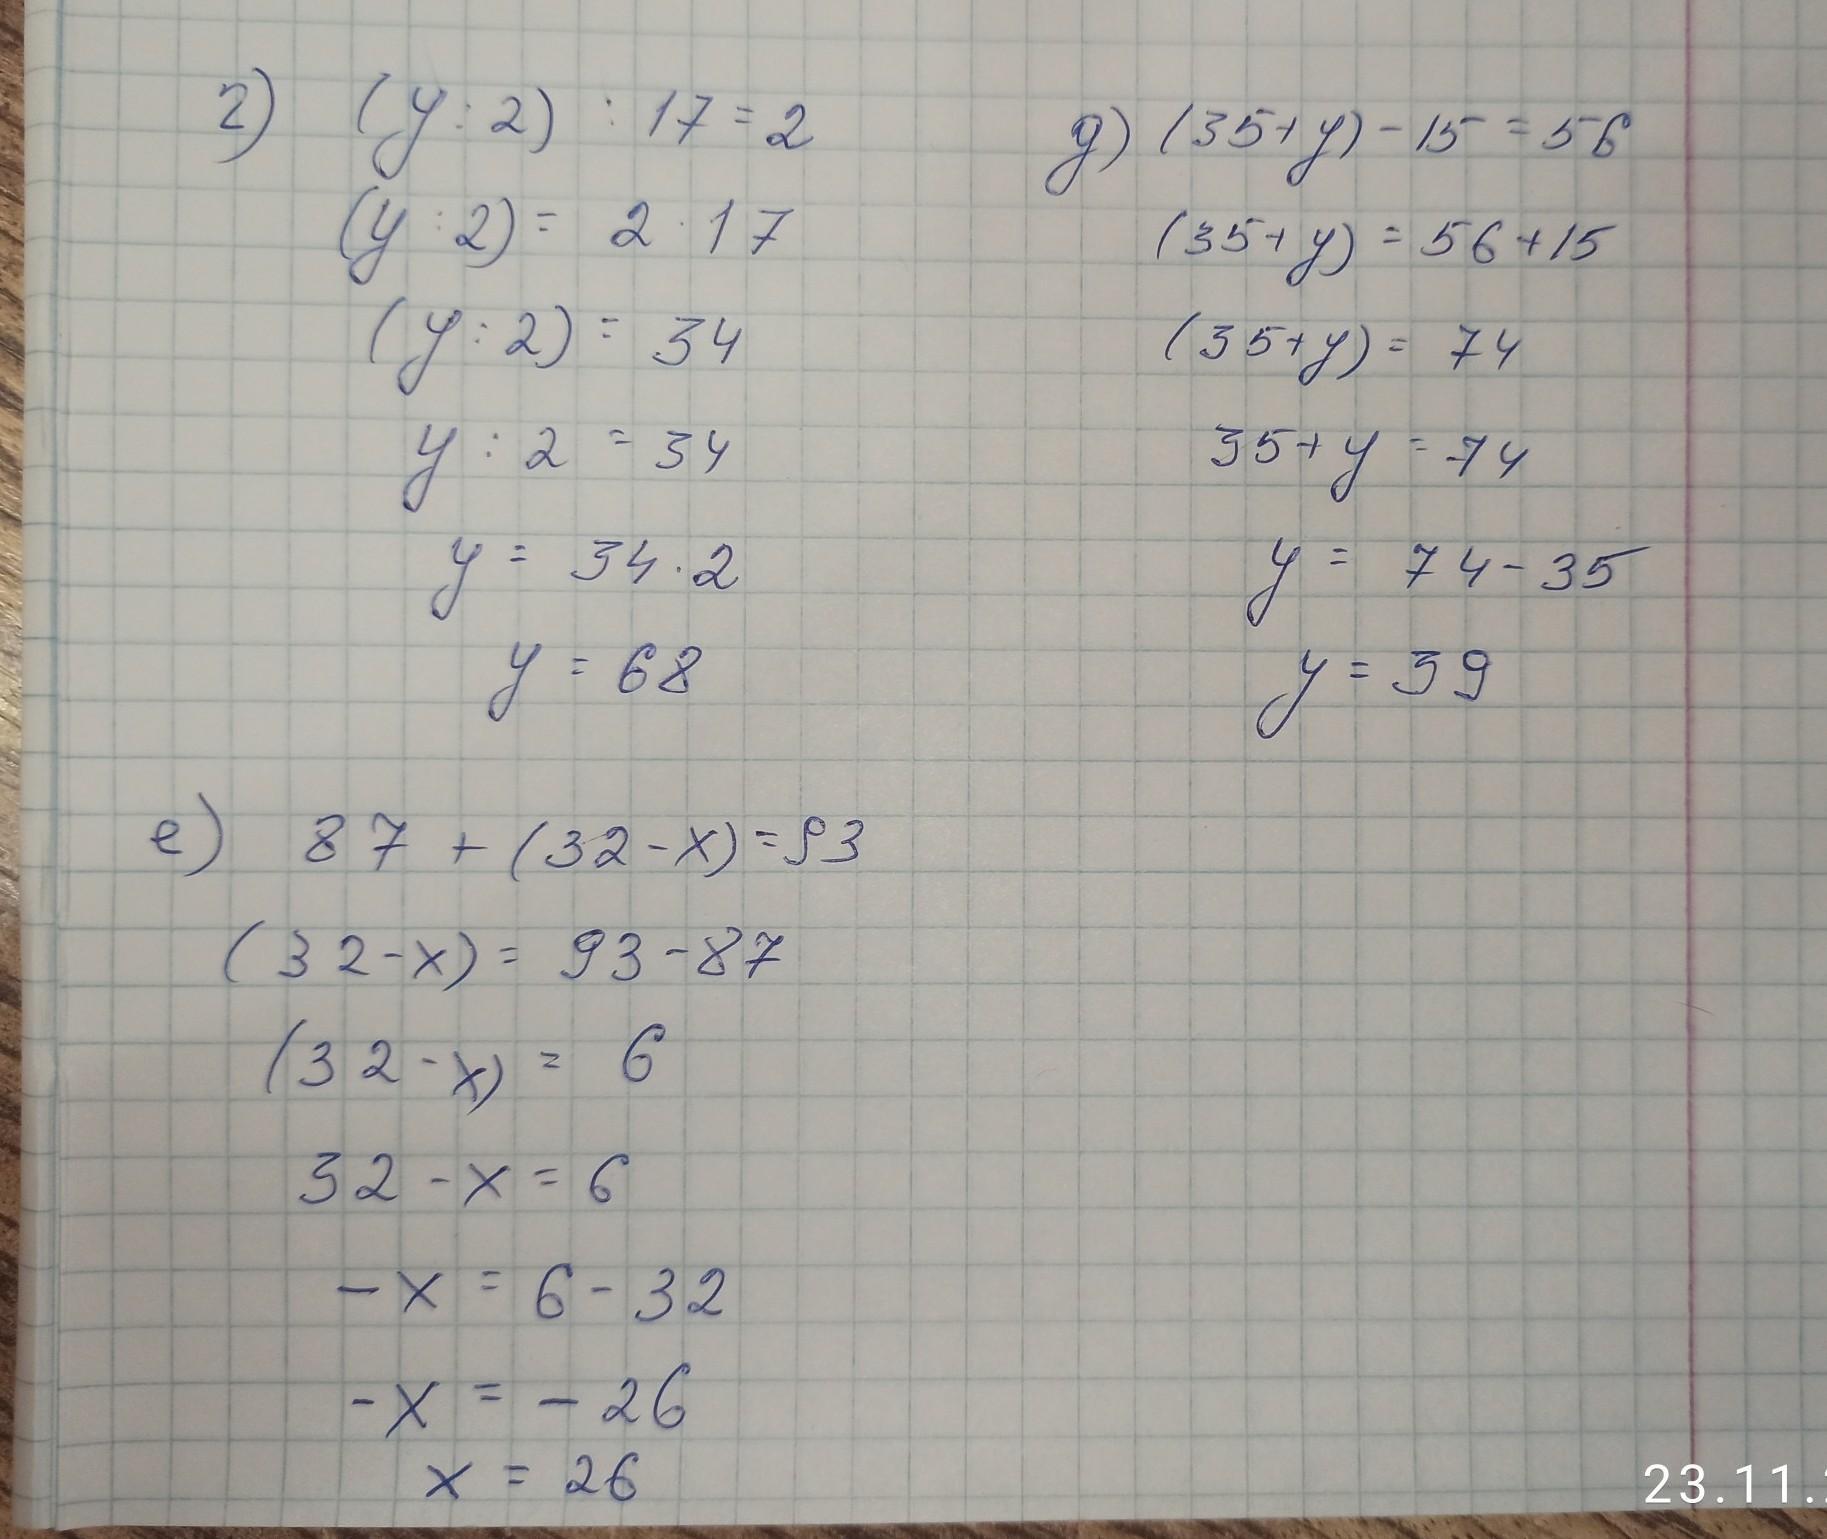 г) (y : 2) : 17 = 2
(y : 2) = 2 · 17
(y : 2) = 34
y : 2 = 34
y = 34 · 2
y = 68
д) (35 + y) - 15 = 56
(35 + y) = 56 + 15
(35 + y) = 74
35 + y = 74
y = 74 - 35
y = 39
е) 87 + (32 - x) = 93
(32 - x) = 93 - 87
(32 - x) = 6
32 - x = 6
- x = 6 - 32
- x = - 26
x = 26
23.11.